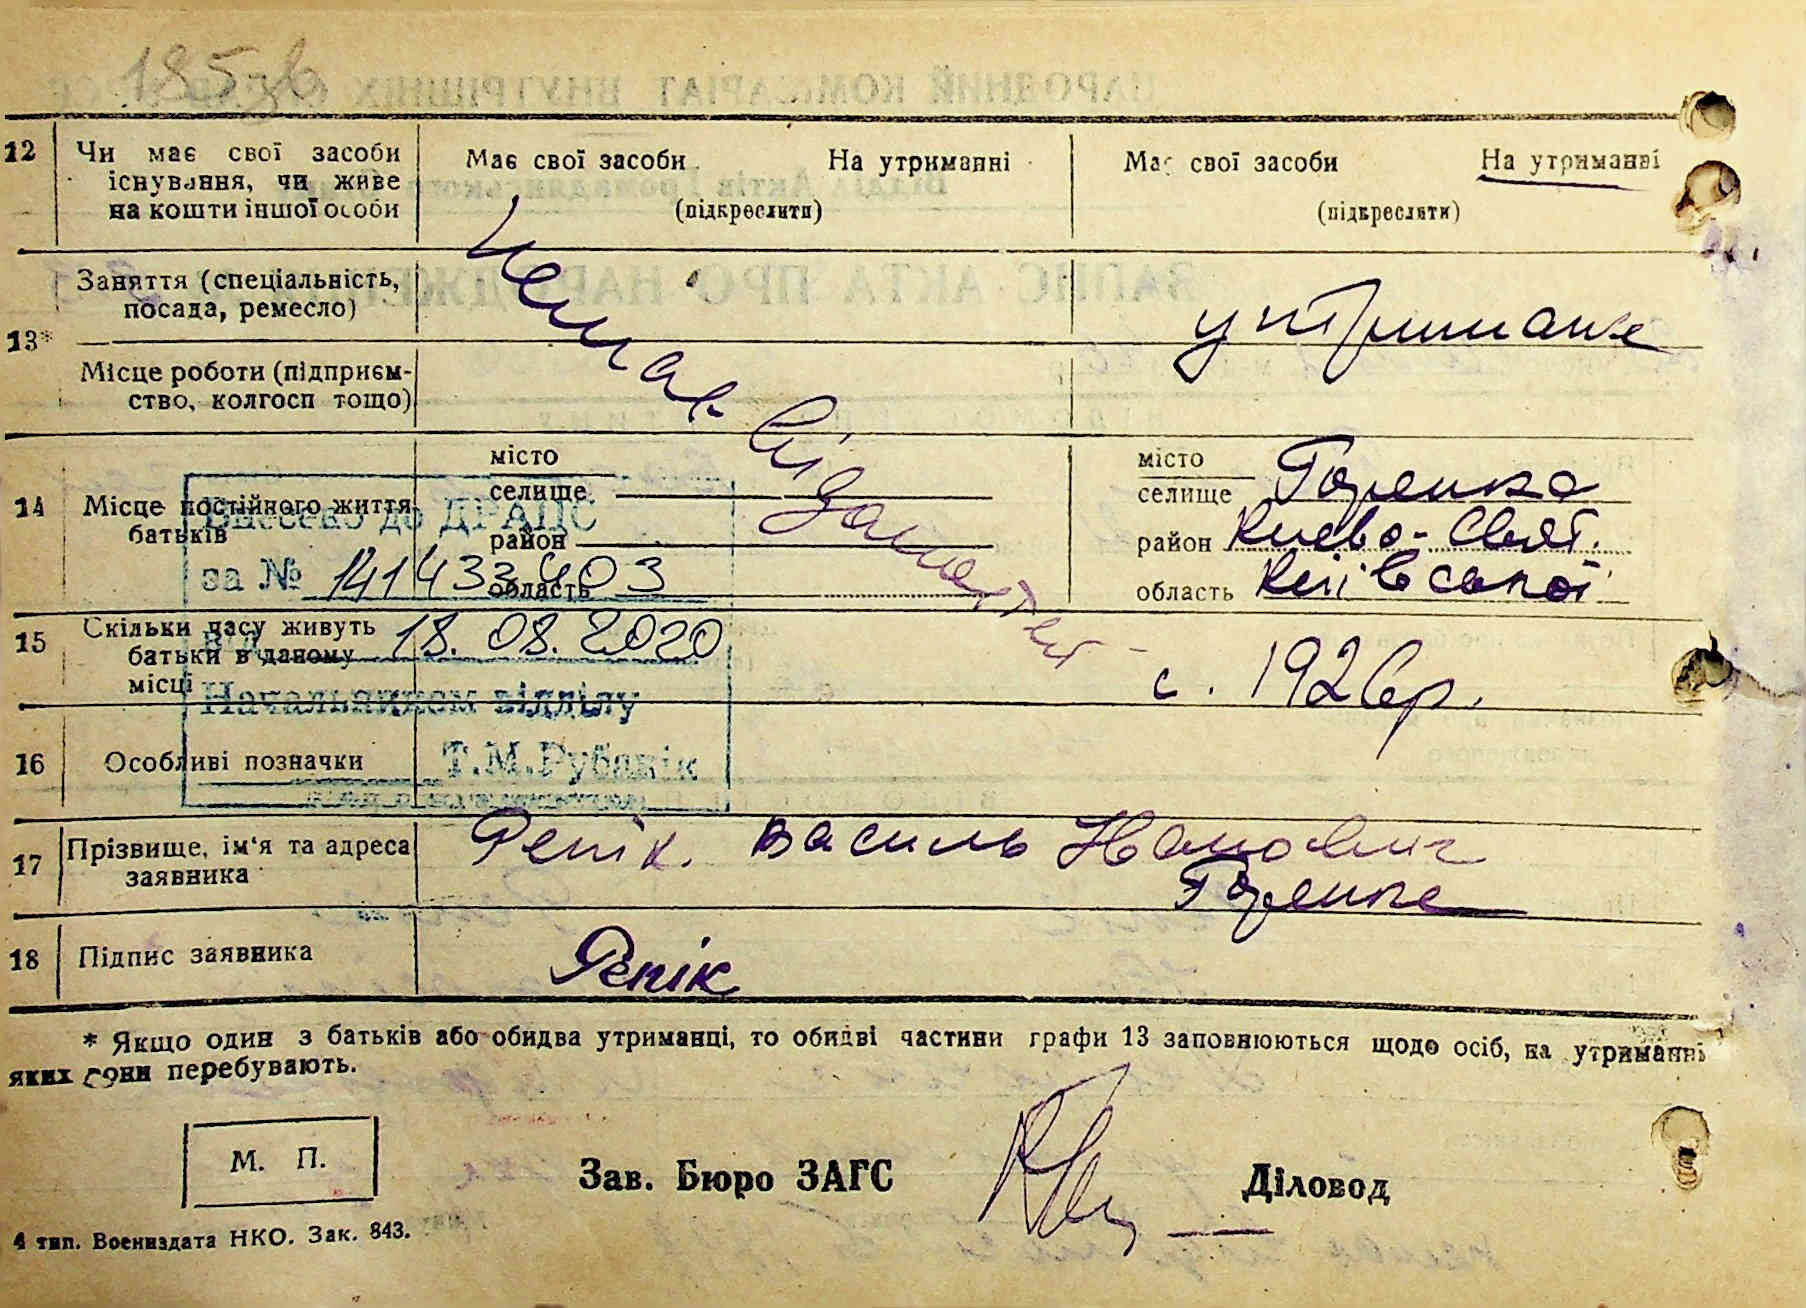 185зв
12 Чи має свої засоби існування, чи живе на кошти іншої особи
Має свої засоби На утриманні
(підкреслити)
Має свої засоби На утриманні
(підкреслити)
13* Заняття (спеціальність, посада, ремесло)
утриманка
Місце роботи (підприєм-
ство, колгосп тощо)
Немає відомостей
14 Місце постійного життя батьків
місто
селище
район
область
місто
селище Горенка
район Києво-Свят.
область Київської
Внесено до ДРАЦС
за № 141433403
від 18.08.2020
Начальником відділу
Т.М.Рубанік
15 Скільки часу живуть батьки в даному місці
с. 1926 р.
16 Особливі позначки
17 Прізвище, ім'я та адреса заявника
Репік. Василь Іванович
Горенка
18 Підпис заявника
Репік
* Якщо один з батьків або обидва утриманці, то обидві частини графи 13 заповнюються щодо осіб, на утриманні
яких вони перебувають.
М. П.
Зав. Бюро ЗАГС
Діловод
4 тип. Воениздата НКО. Зак. 843.